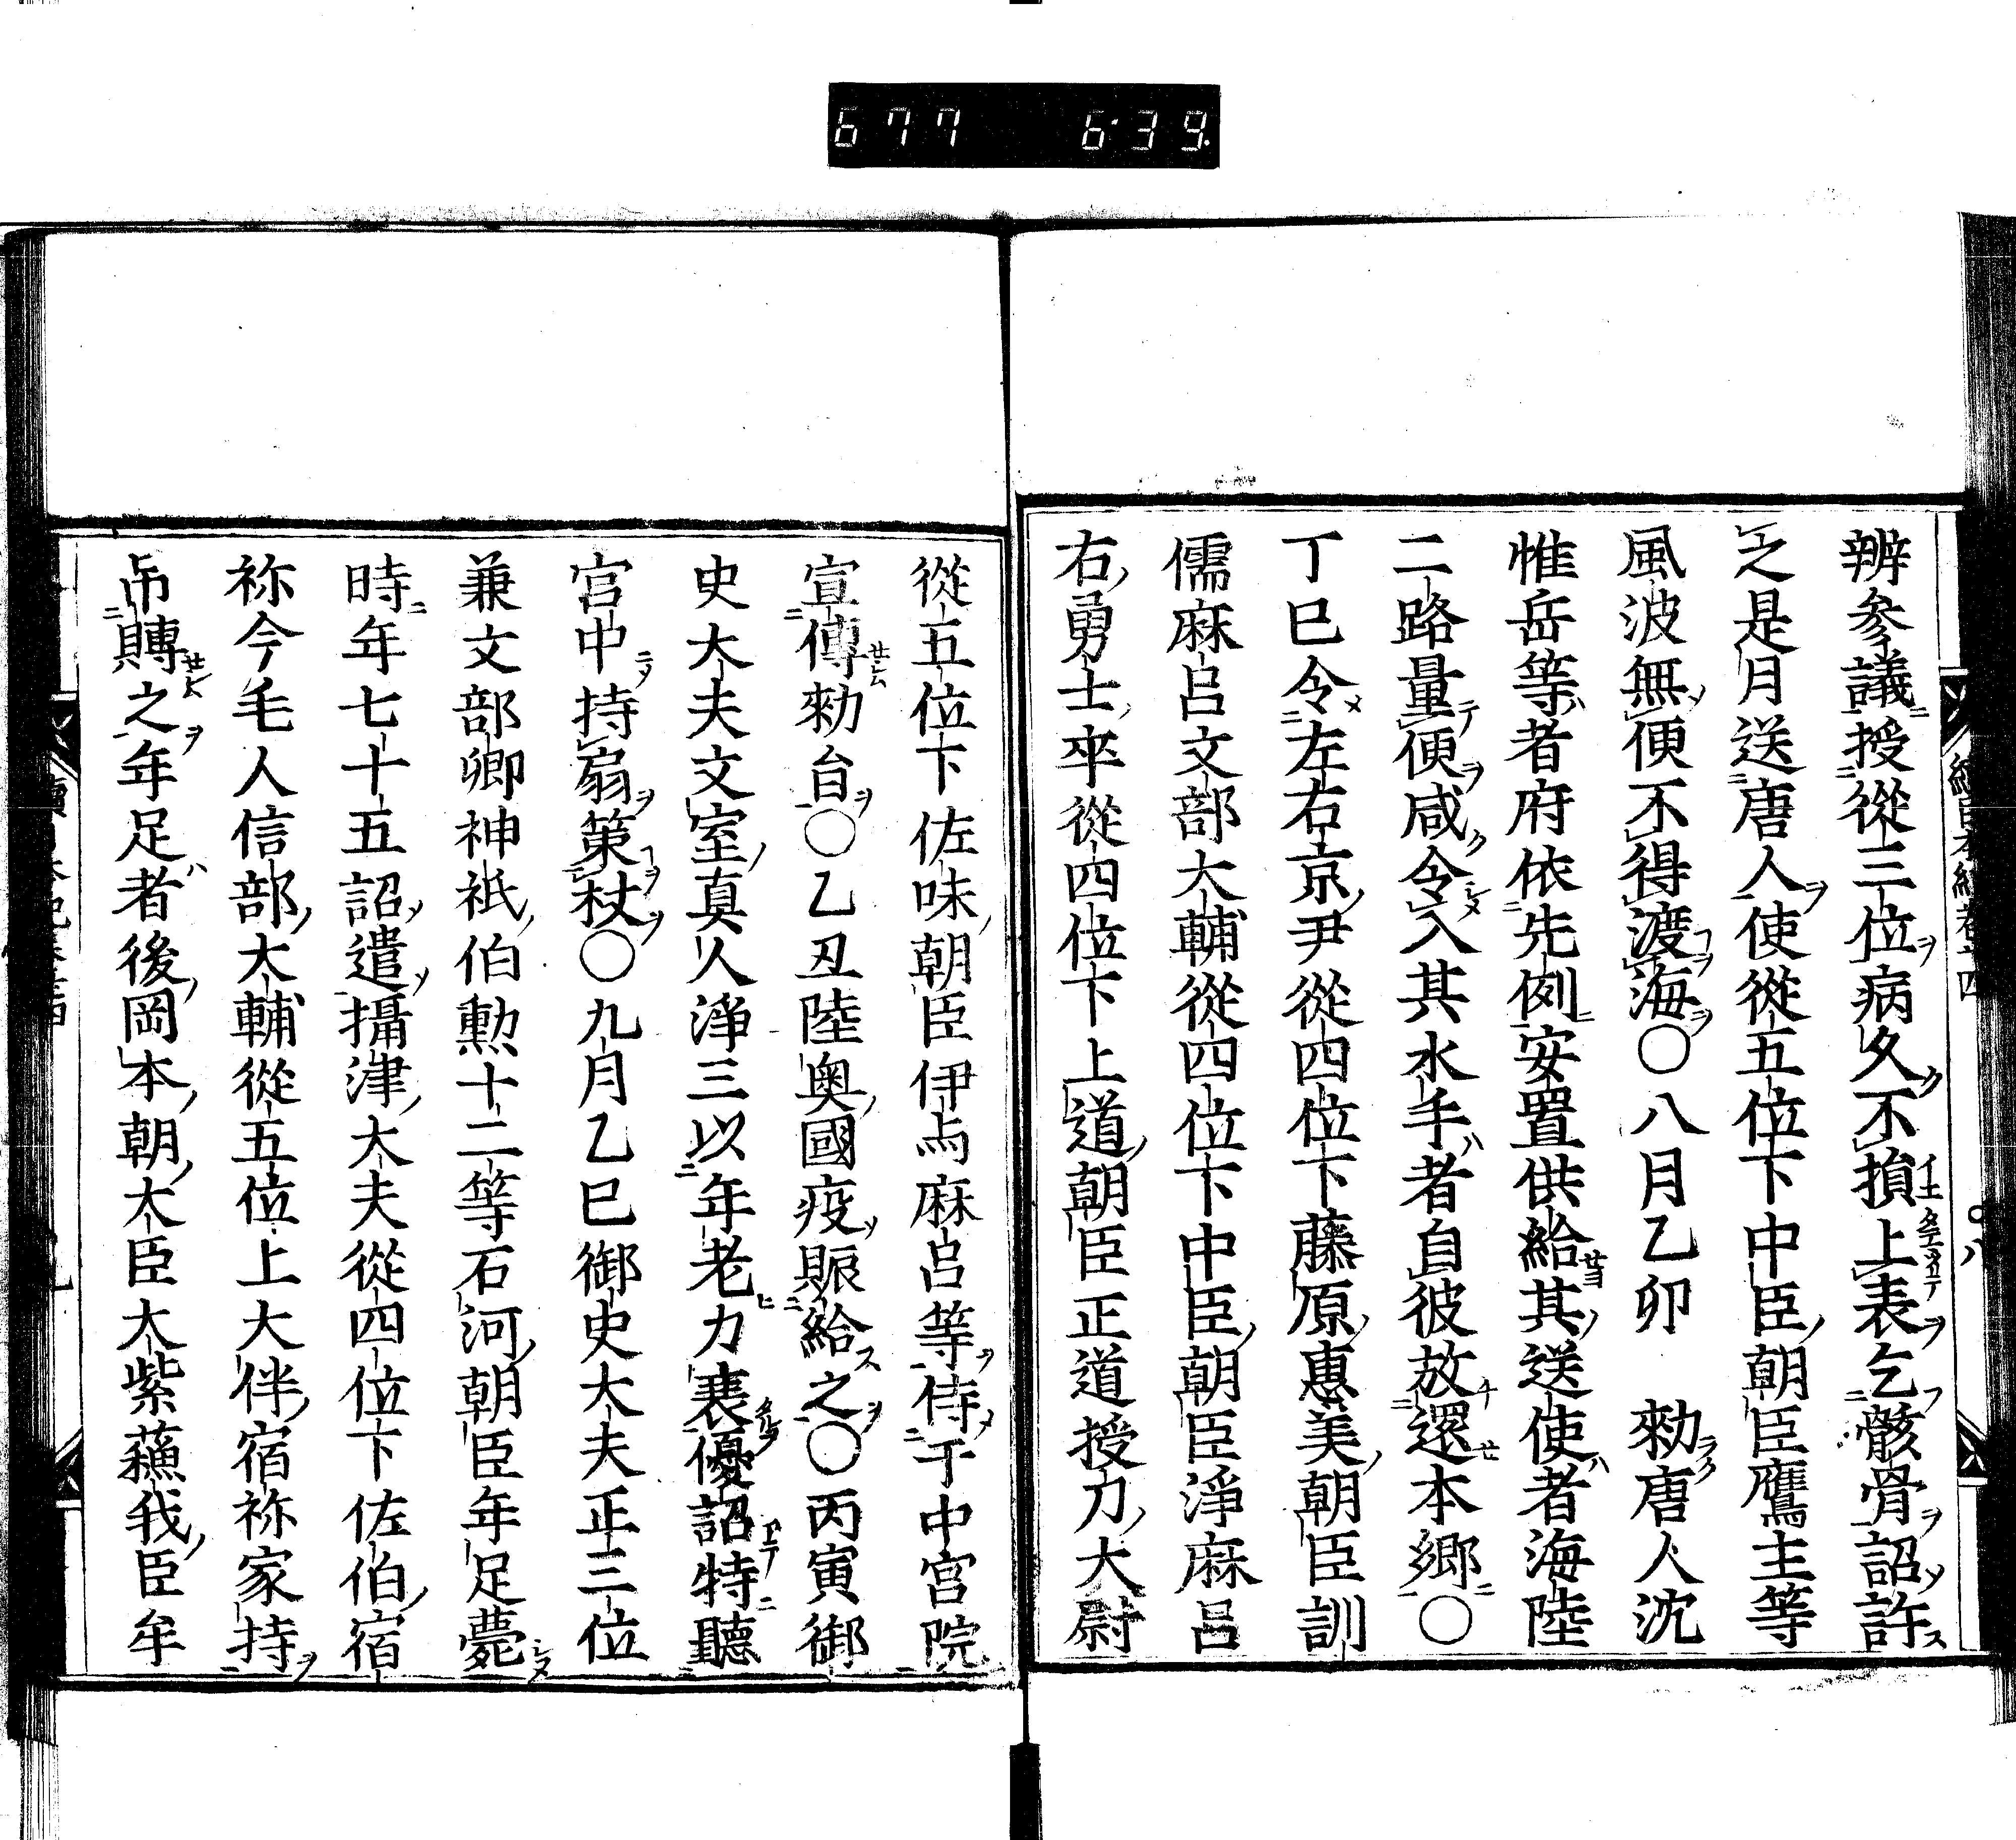 677 6:39.
辨參議授從三位病久不損上表乞骸骨詔許
之是月送唐人使從五位下中臣朝臣鷹主等
風波無便不得渡海〇八月乙卯 勅唐人沈
惟岳等者府依先例安置供給其送使者海陸
二路量便咸令入其水手者自彼放還本郷〇
丁巳令左右京尹從四位下藤原惠美朝臣訓
儒麻呂文部大輔從四位下中臣朝臣淨麻呂
右勇士率從四位下上道朝臣正道授刀大尉
從五位下佐味朝臣伊与麻呂等侍于中宮院
宣傳勅旨〇乙丑陸奧國疫賑給之〇丙寅御
史大夫文室真人淨三以年老力衰優詔特聽
宮中持扇策杖〇九月乙巳御史大夫正三位
兼文部卿神祇伯勲十二等石河朝臣年足薨
時年七十五詔遣攝津大夫從四位下佐伯宿
祢今毛人信部大輔從五位上大伴宿祢家持
吊賻之年足者後岡本朝大臣大紫蘓我臣牟